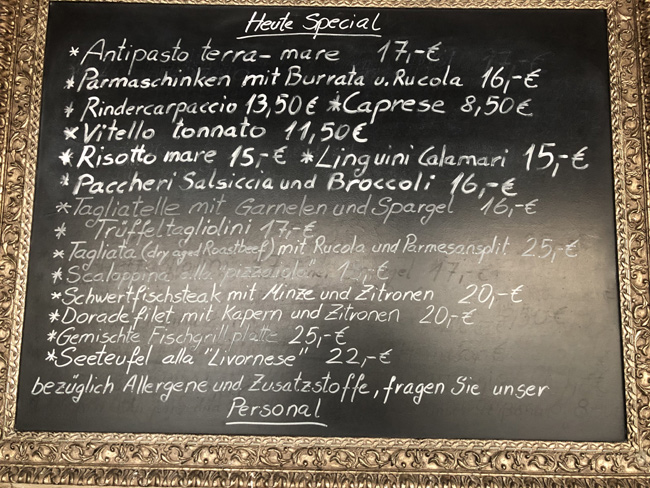 Heute Special
* Antipasto terra-mare 17,-€
* Parmaschinken mit Burrata u. Rucola 16,-€
* Rindercarpaccio 13,50€ * Caprese 8,50€
* Vitello tonnato 11,50€
* Risotto mare 15,-€ * Linguini Calamari 15,-€
* Paccheri Salsiccia und Broccoli 16,-€
* Tagliatelle mit Garnelen und Spargel 16,-€
* Trüffeltagliolini 17,-€
* Tagliata (dry aged Roastbeef) mit Rucola und Parmesansplit 25,-€
* Scaloppina alla
* Schwertfischsteak mit Minze und Zitronen 20,-€
* Doradefilet mit Kapern und Zitronen 20,-€
* Gemischte Fischgrillplatte 25,-€
* Seeteufel alla "Livornese" 22,-€
bezüglich Allergene und Zusatzstoffe, fragen Sie unser
Personal